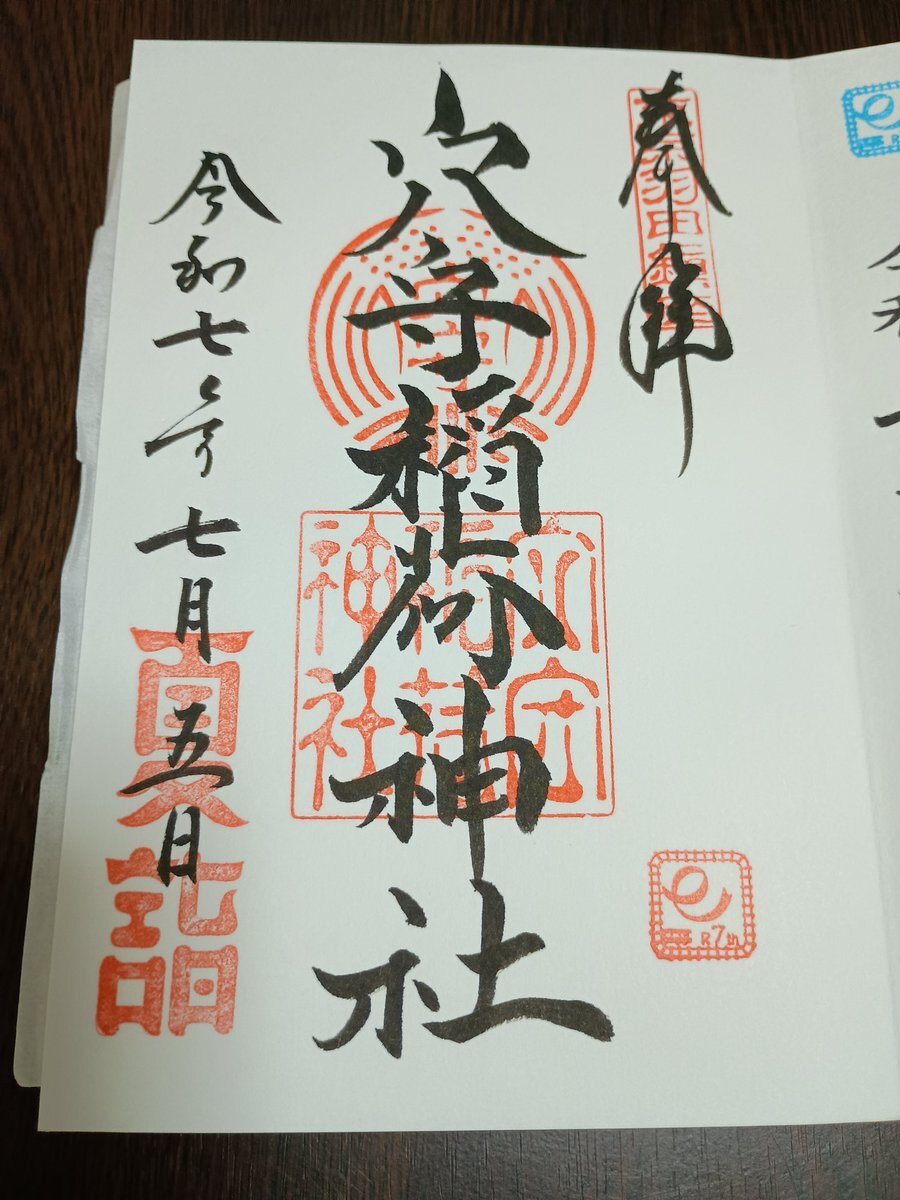 奉拝
穴守稲荷神社
令和七年七月五日
穴守
稲荷
神社
夏詣
R7th